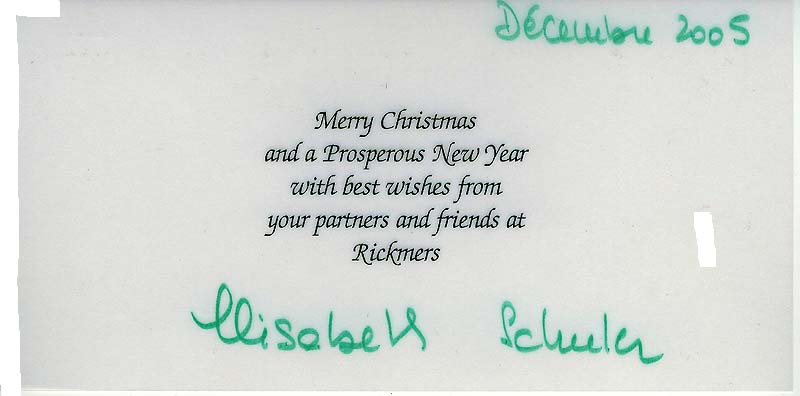 Décembre 2005
Merry Christmas
and a Prosperous New Year
with best wishes from
your partners and friends at
Rickmers
Elisabeth Schuler